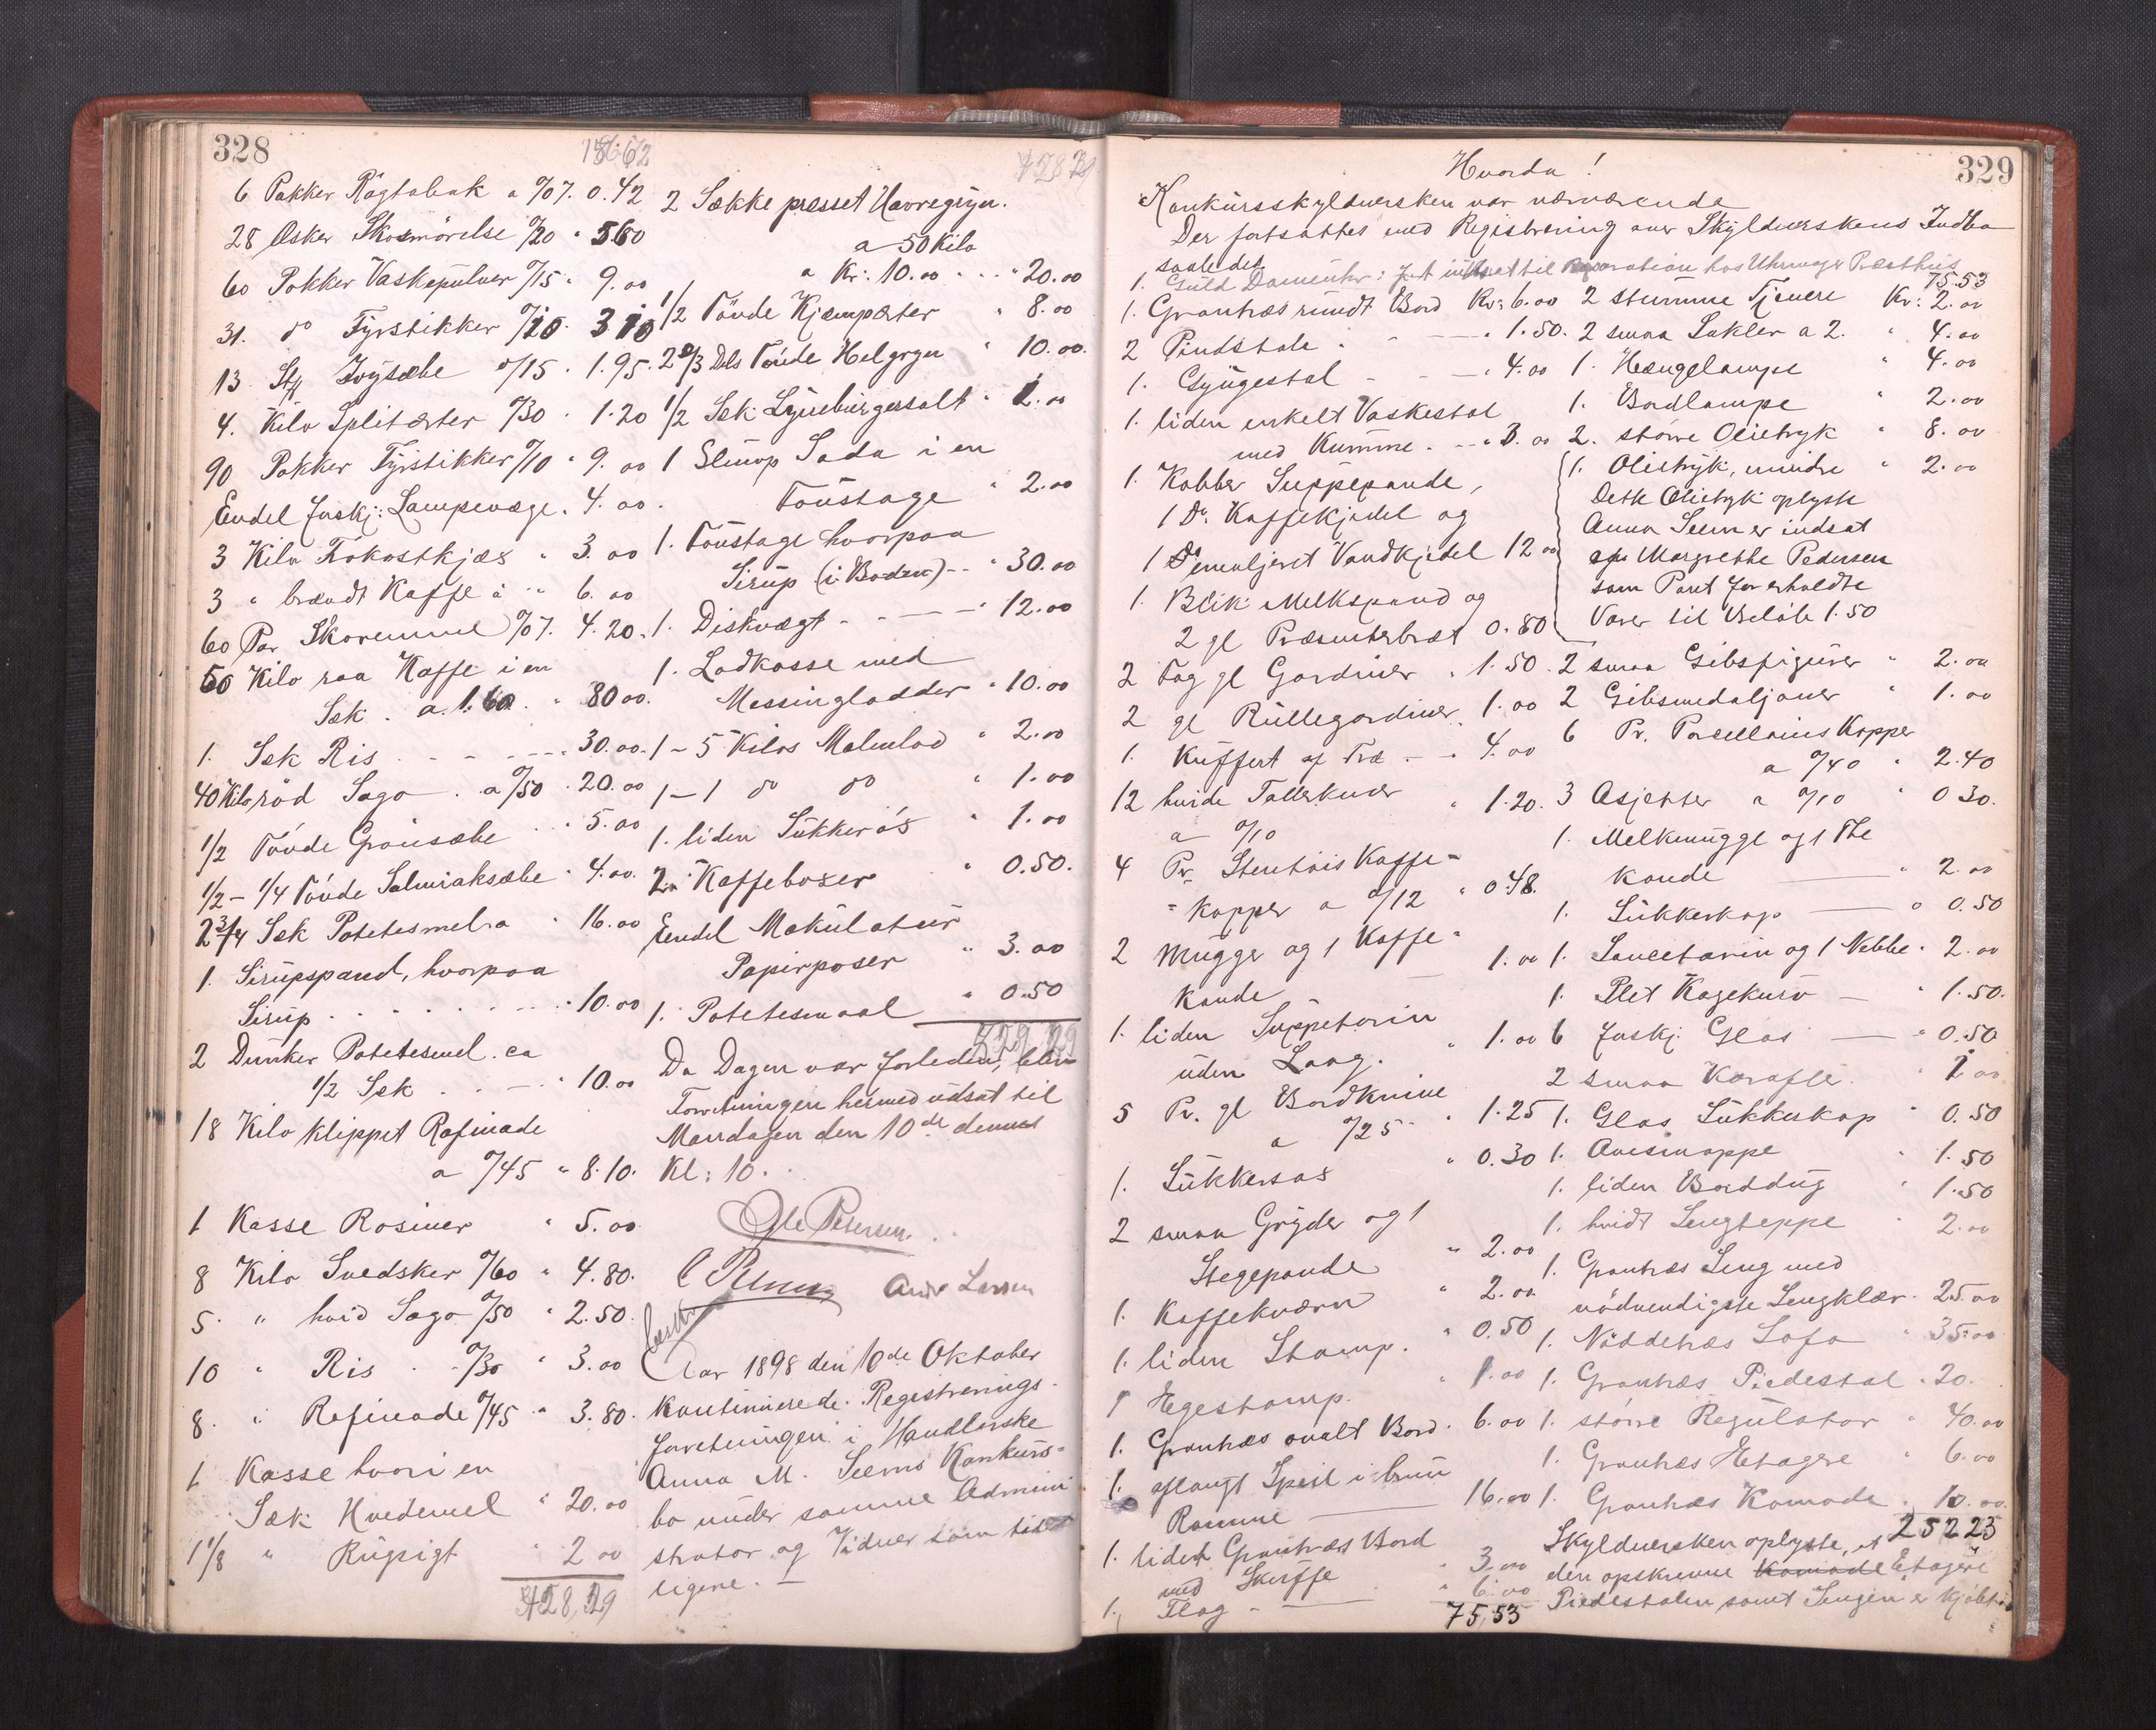 328
6 Pakker Røgtobak a %07. 0.42
28 Æsker Skosmörelse %20 " 560
60 Pakker Vaskepulver %15 " 9.00
31. do Fyrstikker %10. 310
13 Stk Toysæbe %15. 1.95.
4. Kilo Splitærter %30 . 1.20
90 Pakker Fyrstikker %10 " 9.00
Endel forskj: Lampevæge. 4.00.
3 Kilo Frokostkjæs " 3.00
3 " brændt Kaffe a " 6.00
60 Par Skoremme %07. 4.20.
50 Kilo raa Kaffe i en
Sæk . a. 1.60. " 8000.
1. Sæk Ris . - - - 30.00.
40 Kilo röd Sago . a %50 . 20.00
1/2 Tönde Grönsæbe . " 5.00
1/2 - 1/4 Tönde Salmiaksæbe " 4.00.
2 3/4 Sæk Potetesmel a " 16.00
1. Sirupspand, hvorpaa
Sirup . . . . . . . 10.00
2 Dunker Potetesmel. ca
1/2 Sæk . . - - 10.00
18 Kilo klippet Rafinade
a %45 " 8.10.
1 Kasse Rosiner " 5.00
8 Kilo Svedsker %60 " 4.80.
5. " hvid Sago %50 " 2.50.
10 " Ris . - %30 " 3.00
8. " Rafinade %45 " 3.80.
1 Kasse hvori en
Sæk Hvedemel " 20.00
1 1/8 " Rugsigt " 2 00
428,29
2 Sække presset Havregryn.
a 50 Kilo
a Kr: 10.00 . . . " 20.00
1/2 Tönde Kjæmpærter " 8.00
2 2/3 Dels Tönde Helgryn " 10.00.
1/2 Sæk Lyneburgersalt " 2.00
1 Slump Soda i en
Foustage " 2.00
1. Foustage hvorpaa
Sirup (i Boden) - - " 30.00
1. Diskvægt - - - - 12.00
1. Lodkasse med
Messinglodder " 10.00
1 - 5 Kilos Malmlod " 2.00
1 - 1 do do " 1.00
1. liden Sukkerös " 1.00
2. Kaffeboxer " 0.50.
Endel Makulatur
Papirposer " 3.00
1. Potetesmaal " 0.50
529,29
Da Dagen var forleden, blev
Forretningen hermed udsat til
Mandagen den 10de dennes
Kl: 10.
Ole Petersen.
Andr Larsen
Aar 1898 den 10de Oktober
kontinuerede Registrerings-
forretningen i Handlerske
Anna M. Seems Konkurs-
bo under samme Admini
strator og Vidner som tid-
ligere. -
329
Hvorda!
Konkursskyldnersken var nærværende
Der fortsattes med Registrering over Skyldnerskens Indbo
saaledes
1. Guld Dameuhr: Ject indsat til Reparation hos Uhrmager Præsthus
1. Grantræs rundt Bord Kr: 6.00
2 Pindstole . - - " 1.50.
1. Gyngestol - - - " 4.00
1. liden enkelt Vaskestol
med Kumme. - - " 3.00
1. Kobber Suppepande,
1 Do. Kaffekjedel og
1 Do emaljeret Vandkjedel 12 00
1. Blik Melkspand og
2 gl Præsenterbræt 0.80
2 Fag gl Gardiner " 1.50.
2 gl Rullegardiner " 1.00
1. Kuffert af Træ - - 4.00
12 hvide Tallerkener " 1.20.
a %10
4 Pr. Stentöis Kaffe-
- kopper a %12 " 0.48.
2 Mugger og 1 Kaffe-
kande 1.00
1. liden Suppeterrin
uden Laag. " 1.00
5 Pr. gl Bordknive
a %25 " 1.25
1. Sukkersax " 0.30
2 smaa Gryder og 1
Stegepande " 2.00
1. Kaffekværn " 2.00
1. liden Stamp. " 0.50
1 Egestamp. " 1.00
1. Grantræs ovalt Bord. 6.00
1. aflangt Speil i brun
Ramme 16.00
1. lidet Grantræs Bord
med Skuffe " 3.00
1. Flag - " 6.00
75,53
75.53
2 stumme Tjenere Kr: 2.00
2 smaa Sakler a 2. " 4.00
1. Hængelampe " 4.00
1. Bordlampe " 2.00
2. större Olietryk " 8.00
1. Olietryk, mindre " 2.00
Dette Olietryk oplyste
Anna Seem er indsat
af Margrethe Pedersen
som Pant for erholdte
Varer til Beløb 1.50
2 smaa Gibsfigurer " 2.00
2 Gibsmedaljoner " 1.00
6 Pr. Porcellains Kopper
a %40 " 2.40
3 Asjetter a %10 " 0 30.
1. Melkmugge og 1 The
kande " 2.00
1. Sukkerkop " 0.50
1. Sauceterrin og 1 Nebbe " 2.00
1. Plet Kagekurv - " 1.50.
6 forskj. Glas - " 0.50
2 smaa Karafler. " 1 00
1. Glas Sukkerkop " 0.50
1. Avismappe " 1.50
1. liden Borddug " 1.50
1. hvidt Sengteppe " 2.00
1. Grantræs Seng med
nödvendigste Sengklær. 25.00
1. Nöddetræs Sofa " 35.00
1. Grantræs Piedestal " 20.
1. större Regulator " 40.00
1. Grantræs Etagere " 6.00
1. Grantræs Komode " 10.00.
25223
Skyldnersken oplyste, at
den opskrevne Komode Etagere
Piedestalen samt Sengen er kjöbt